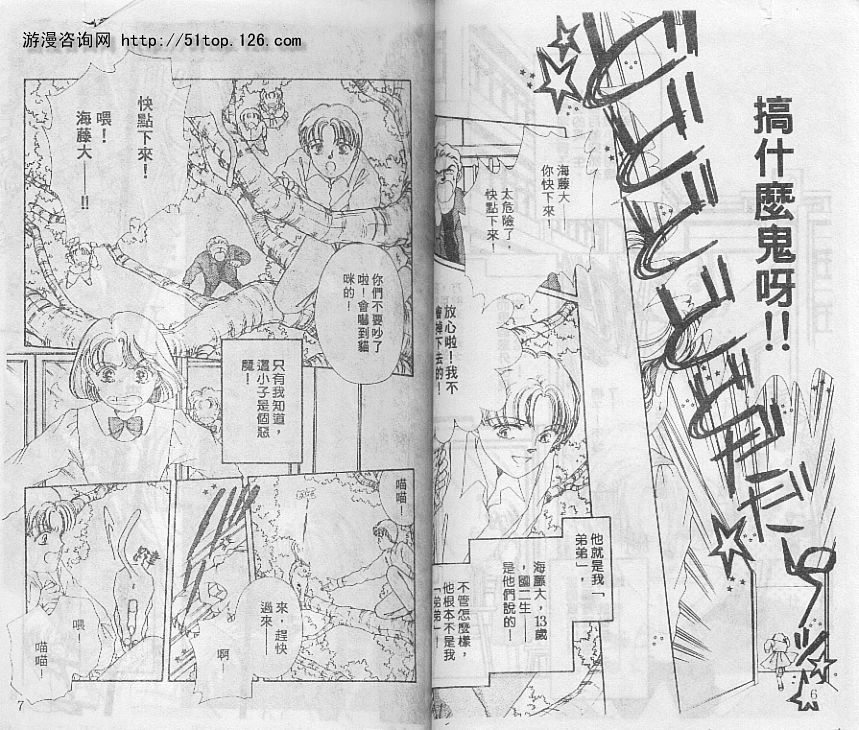 游漫咨询网 http://51top.126.com
搞什麼鬼呀!!
海藤大——
你快下來！
太危險了，
快點下來！
放心啦！我不
會掉下去的！
他就是我「
弟弟」，
海藤大，13歲
，國二生——
是他們說的！
不管怎麼樣，
他根本不是我
「弟弟」！
6
快點下來！
喂！
海藤大——!!
你們不要吵了
啦！會嚇到貓
咪的！
只有我知道，
這小子是個惡
魔！
喵喵
來，趕快
過來——
啊
喂！
喵喵！
7